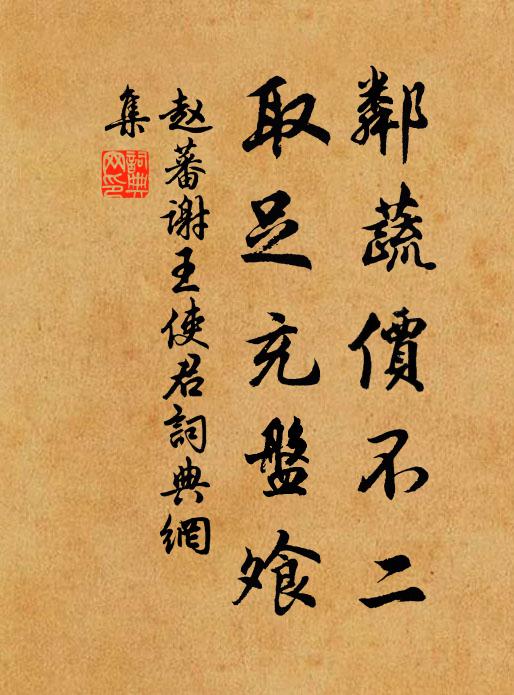 鄰蔬價不二
取足充盤飧
赵蕃谢王使君詞典網
集
詞典
网印